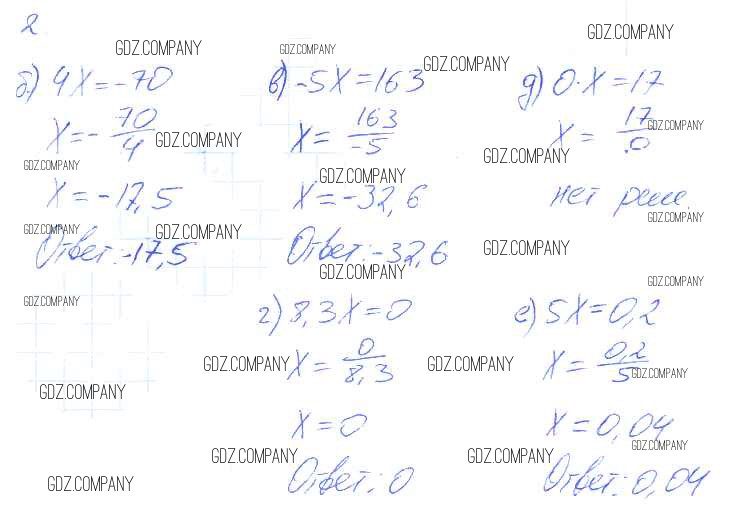 2
GDZ.COMPANY
GDZ.COMPANY
GDZ.COMPANY
GDZ.COMPANY
б) 4X=-70
X=-70/4
GDZ.COMPANY
GDZ.COMPANY
X=-17,5
GDZ.COMPANY
GDZ.COMPANY
Ответ:-17,5
в) -5X=163
X=163/-5
GDZ.COMPANY
X=-32,6
Ответ:-32,6
GDZ.COMPANY
д) 0·X=17
X=17/0
GDZ.COMPANY
GDZ.COMPANY
нет реш.
GDZ.COMPANY
GDZ.COMPANY
GDZ.COMPANY
GDZ.COMPANY
GDZ.COMPANY
GDZ.COMPANY
г) 8,3X=0
X=0/8,3
GDZ.COMPANY
X=0
GDZ.COMPANY
Ответ:0
е) 5X=0,2
X=0,2/5
GDZ.COMPANY
GDZ.COMPANY
X=0,04
GDZ.COMPANY
GDZ.COMPANY
Ответ:0,04